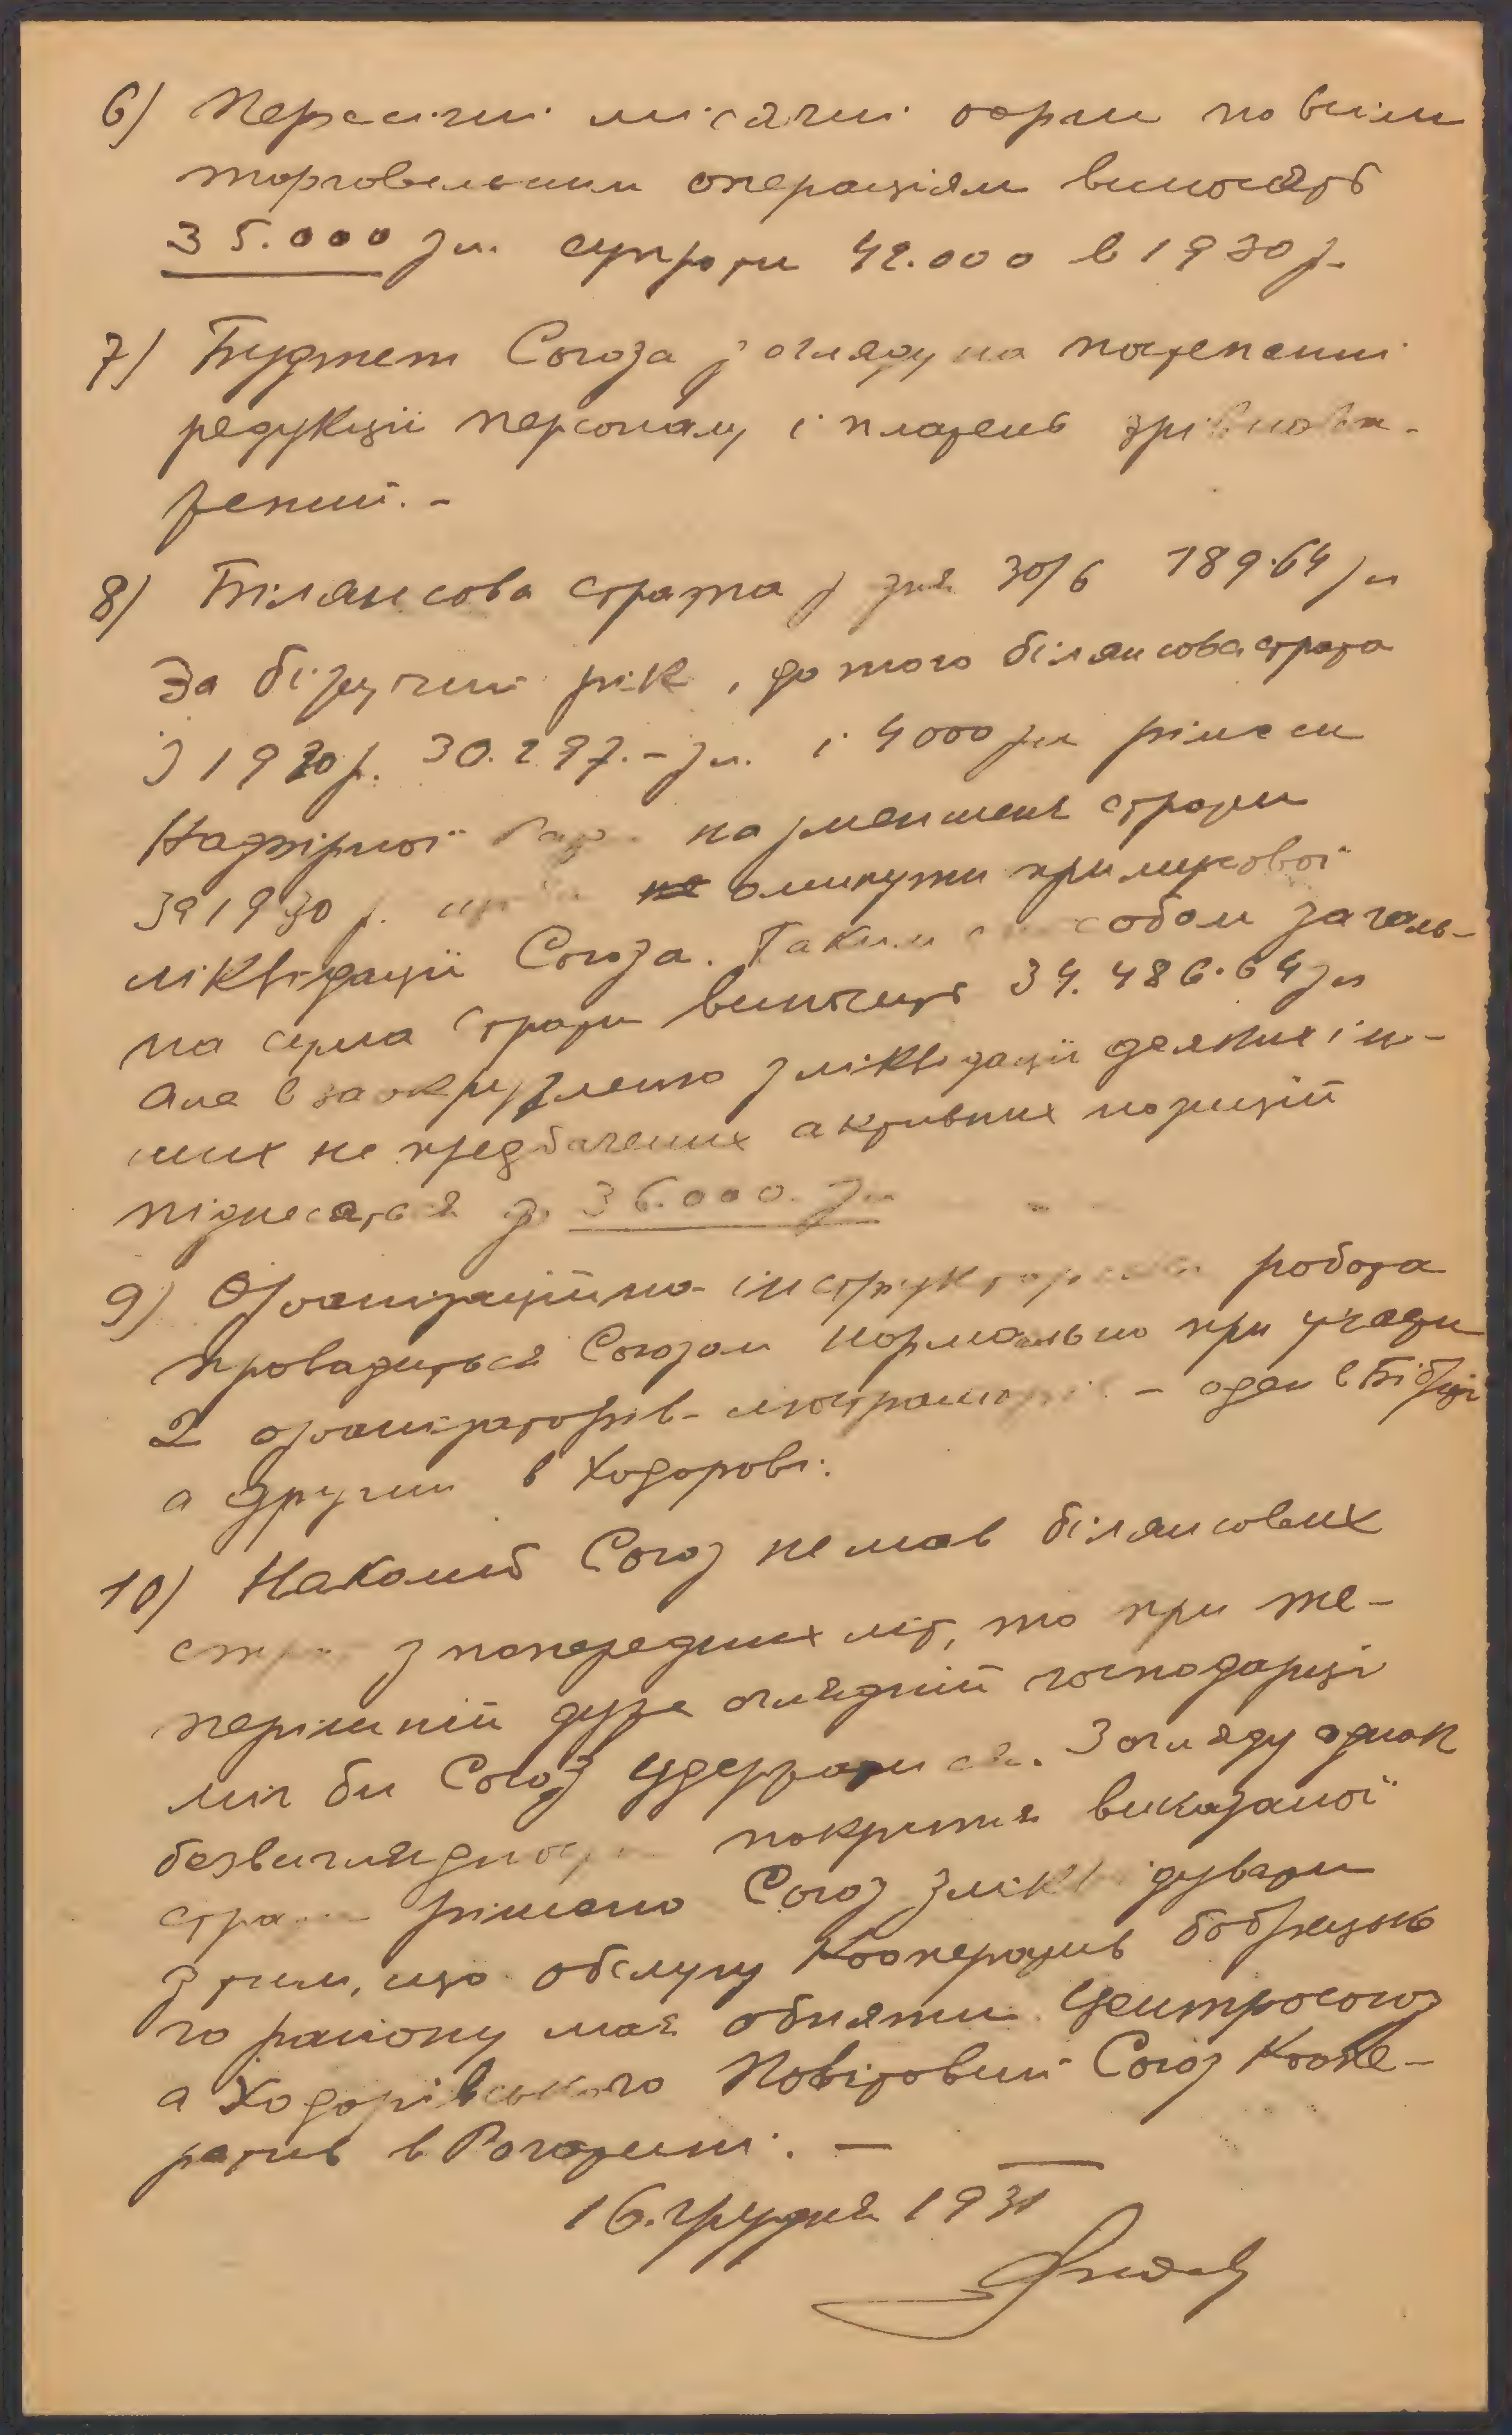 6) Пересічні місячні оборти по всім
торговельним операціям виносять
35.000 зл. супроти 42.000 в 1930 р.
7) Буджет Союза з огляду на постепенні
редукції персоналу і платень зрівнова-
жений. –
8) Білянсова страта з дня 30/6 189.64 зл
За біжучий рік, до того білянсова страта
З 1930 р. 30.297.– зл. і 4000 зл рішеня
Надзірної Ради на зменшеня страти
за 1930 р. щоби не оминути примусової
ліквідації Союза. Таким способом заголь-
на сума страти виносить 34.486.64 зл
Але в заокругленю з ліквідації деяких ін-
ших не предбачених активних позицій
піднесеться до 36.000. зл
9) Організаційно-інструкторська робота
провадиться Союзом нормально при участи
2 організаторів-люстраторів – оден в Бібрці
а другий в Ходорові.
10) Наколиб Союз не мав білянсових
страт з попередних літ, то при те-
перішній дуже оглядній господарці
міг би Союз удержатися. З огляду однак
безвиглядности покритя виказаної
страти рішено Союз зліквідувати
з тим, що обслугу Кооператив бобрецько
го району має обняти Центросоюз
а Ходорівського Повітовий Союз Коопе-
ратив в Рогатині. –
16. грудня 1931